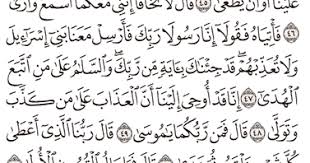 عَلَيْنَآ أَوْ أَن يَطْغَىٰ ٤٥ قَالَ لَا تَخَافَآ إِنَّنِى مَعَكُمَآ أَسْمَعُ وَأَرَىٰ
٤٦ فَأْتِيَاهُ فَقُولَآ إِنَّا رَسُولَا رَبِّكَ فَأَرْسِلْ مَعَنَا بَنِىٓ إِسْرَٰٓءِيلَ
وَلَا تُعَذِّبْهُمْ ۖ قَدْ جِئْنَٰكَ بِـَٔايَةٍ مِّن رَّبِّكَ ۖ وَٱلسَّلَٰمُ عَلَىٰ مَنِ ٱتَّبَعَ
ٱلْهُدَىٰٓ ٤٧ إِنَّا قَدْ أُوحِىَ إِلَيْنَآ أَنَّ ٱلْعَذَابَ عَلَىٰ مَن كَذَّبَ
وَتَوَلَّىٰ ٤٨ قَالَ فَمَن رَّبُّكُمَا يَٰمُوسَىٰ ٤٩ قَالَ رَبُّنَا ٱلَّذِىٓ أَعْطَىٰ